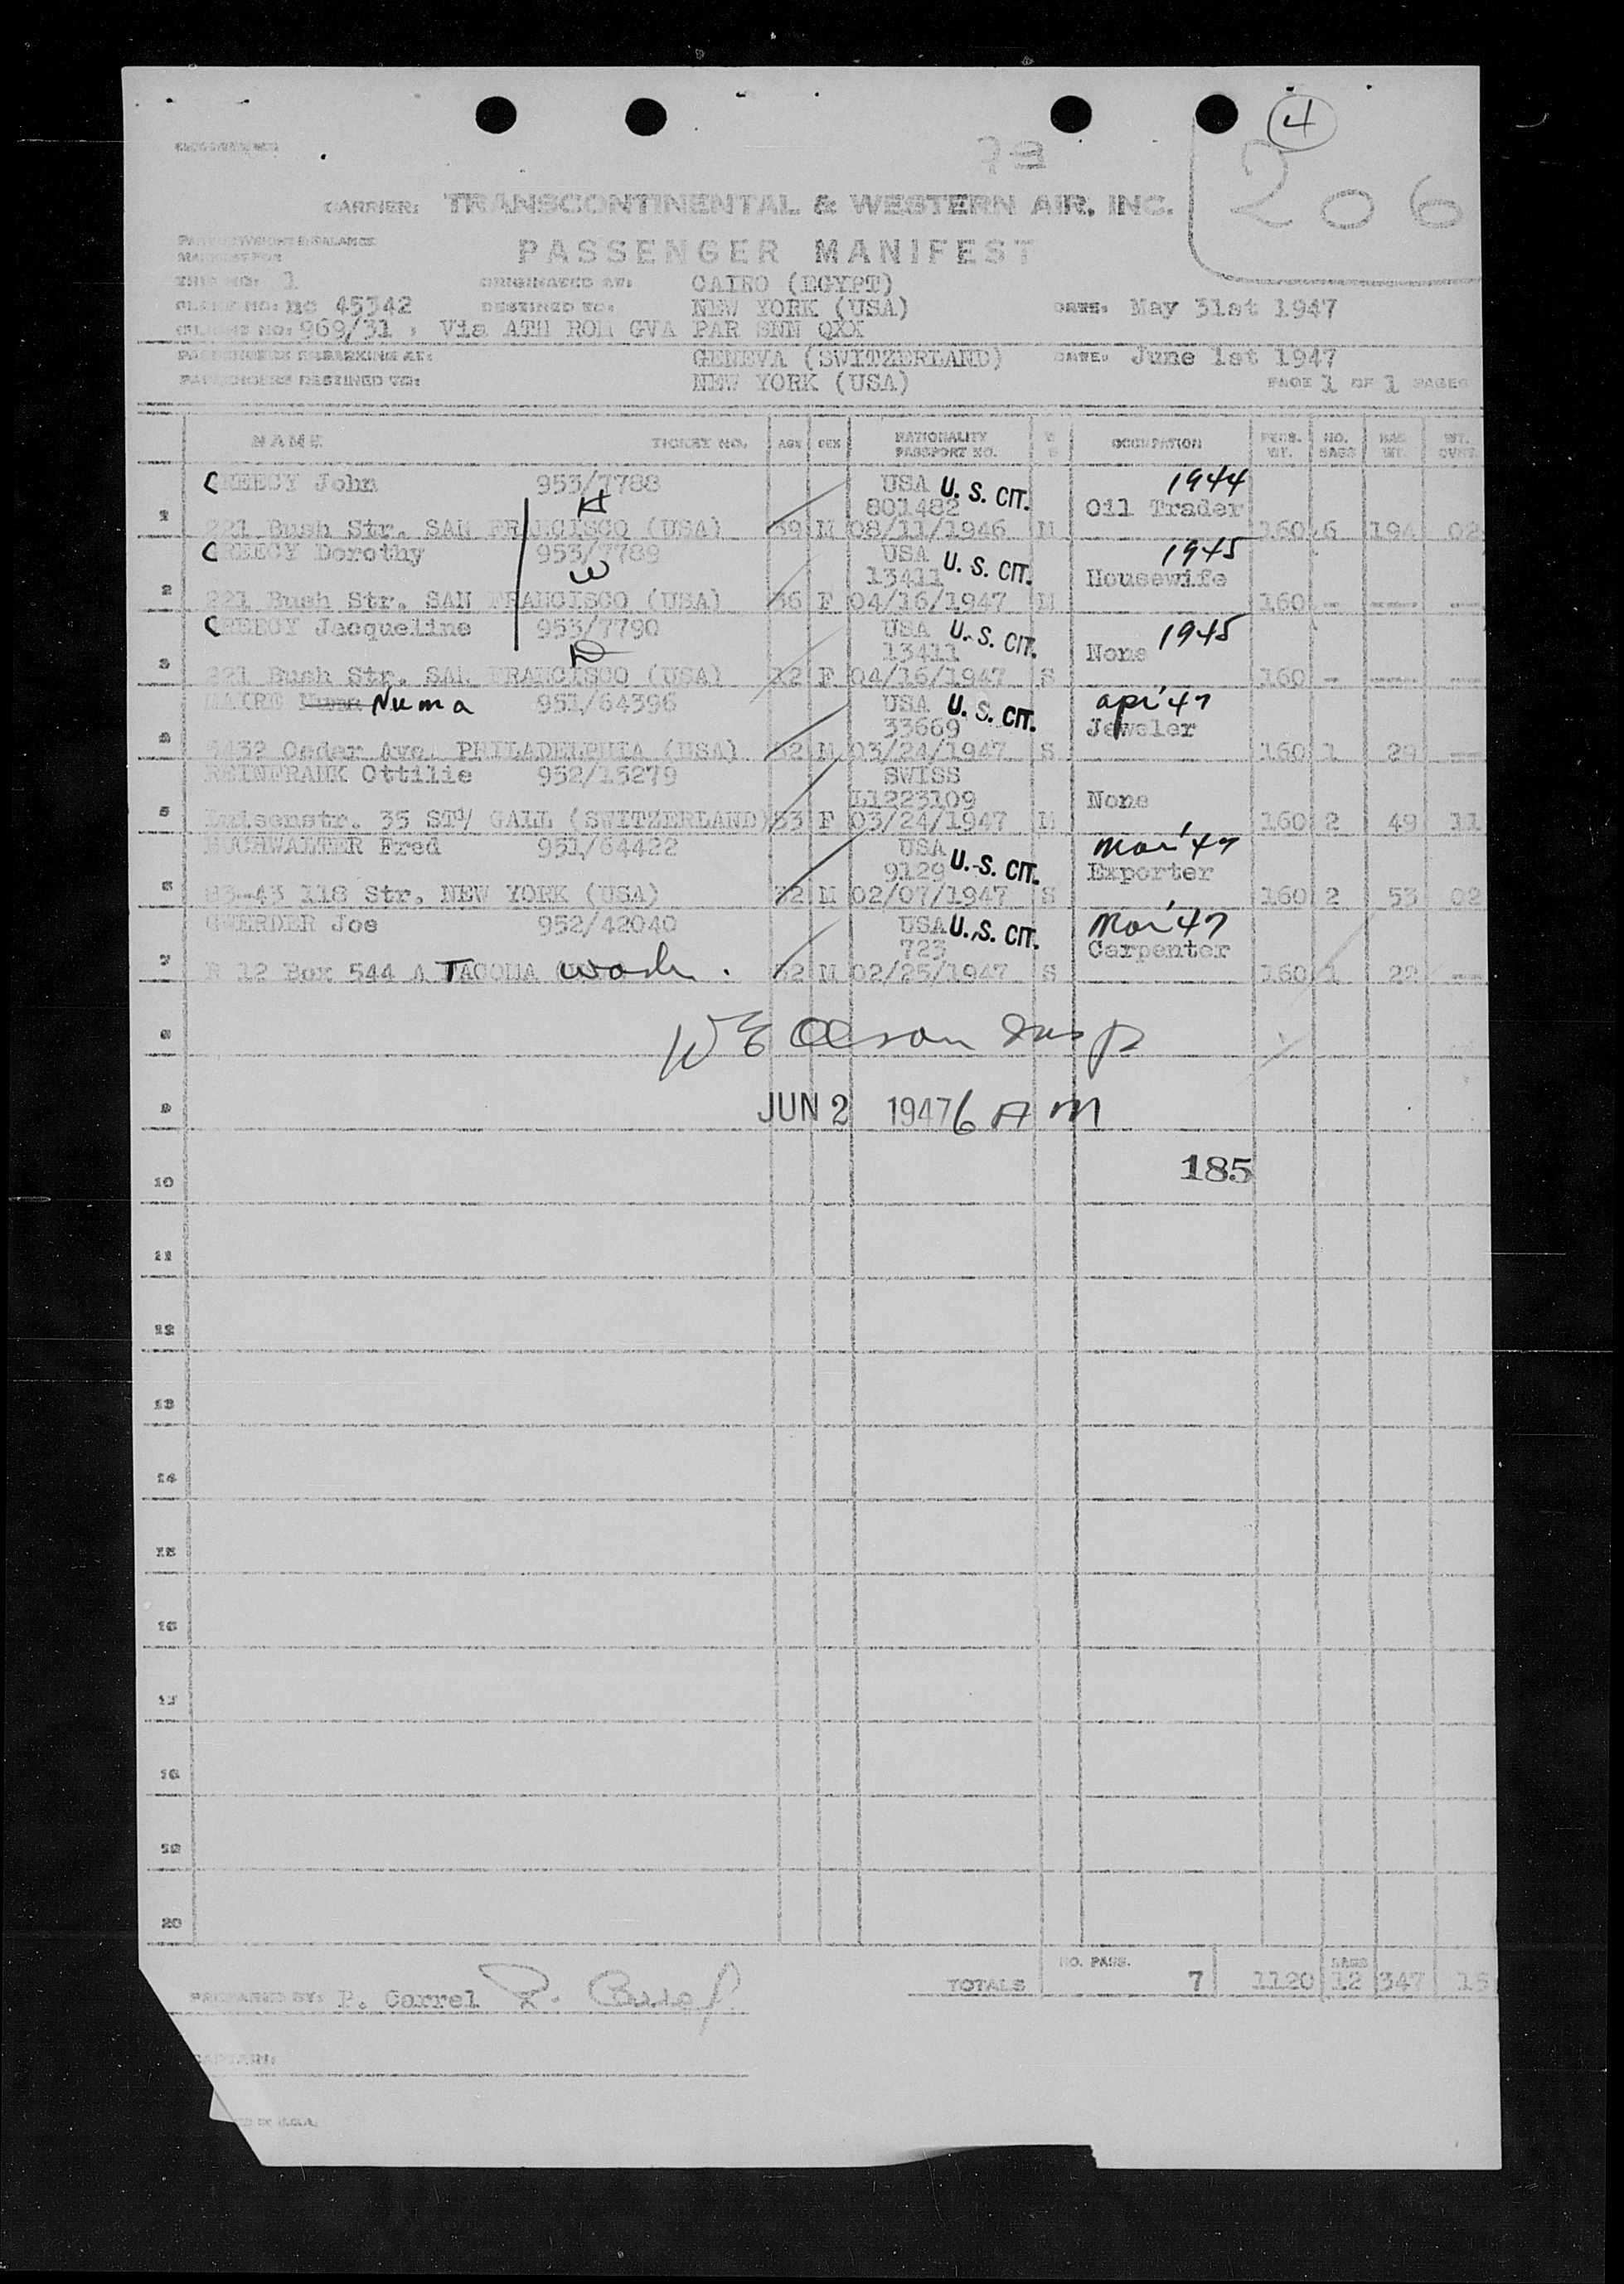 4
206
CARRIER: TRANSCONTINENTAL & WESTERN AIR, INC.
WEIGHT & BALANCE
MANIFEST FOR
PASSENGER MANIFEST
TRIP NO: 1 ORIGINATED AT: CAIRO (EGYPT)
PLANE NO: NC 45342 DESTINED TO: NEW YORK (USA) DATE: May 31st 1947
FLIGHT NO: 969/31 , Via ATH ROM GVA PAR SNN QXX
PASSENGERS EMBARKING AT: GENEVA (SWITZERLAND) DATE: June 1st 1947
PASSENGERS DESTINED TO: NEW YORK (USA) PAGE 1 OF 1 PAGES
NAME TICKET NO. AGE SEX NATIONALITY PASSPORT NO. OCCUPATION PERS. WT. NO. BAGS BAG WT. WT. OVER
CREECY John 953/7788 USA U. S. CIT. 1944
H 801482 Oil Trader
1 221 Bush Str. SAN FRANCISCO (USA) 39 M 08/11/1946 M 160 6 194 02
CREECY Dorothy 953/7789 USA U. S. CIT. 1945
W 13411 Housewife
2 221 Bush Str. SAN FRANCISCO (USA) 36 F 04/16/1947 M 160 - --- ---
CREECY Jacqueline 953/7790 USA U. S. CIT. 1945
D 13411 None
3 221 Bush Str. SAN FRANCISCO (USA) 12 F 04/16/1947 S 160 - --- ---
Numa 951/64396 USA U. S. CIT. apr '47
33669 Jeweler
4 5432 Cedar Ave. PHILADELPHIA (USA) M 03/24/1947 S 160 1 29 ---
REINFRANK Ottilie 952/15279 SWISS
L1223109 None
5 Luisenstr. 35 ST/ GALL (SWITZERLAND) 53 F 03/24/1947 M 160 2 49 11
BUCHWALTER Fred 951/64422 USA Mar '47
9129 U. S. CIT. Exporter
6 83-43 118 Str. NEW YORK (USA) 32 M 02/07/1947 S 160 2 53 02
GWERDER Joe 952/42040 USA U. S. CIT. Mar '47
723 Carpenter
7 R 12 Box 544 A TACOMA Wash. 52 M 02/25/1947 S 160 1 22 ---
8 W E Olson Insp
9 JUN 2 1947 6 AM
185
10
11
12
13
14
15
16
17
18
19
20
TOTALS NO. PASS. 7 1120 BAGS 12 347 15
PREPARED BY: P. Carrel
CAPTAIN: